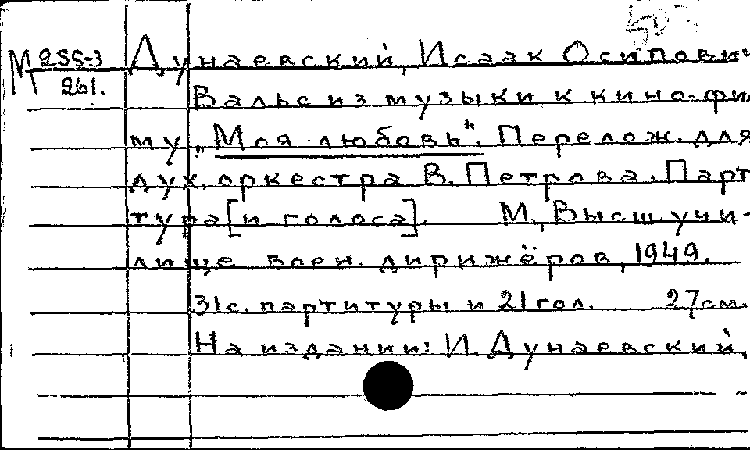 М 255-3 Дунаевский, Исаак Осипови
261.
Вальс из музыки к кино-фи
му „Моя любовь". Перелож. для
дух. оркестра В. Петрова. Парт
тура [и голоса]. М., Высш. учи-
лище воен. дирижёров, 1949.
31с. партитуры и 21 гол. 27см.
На издании: И. Дунаевский.